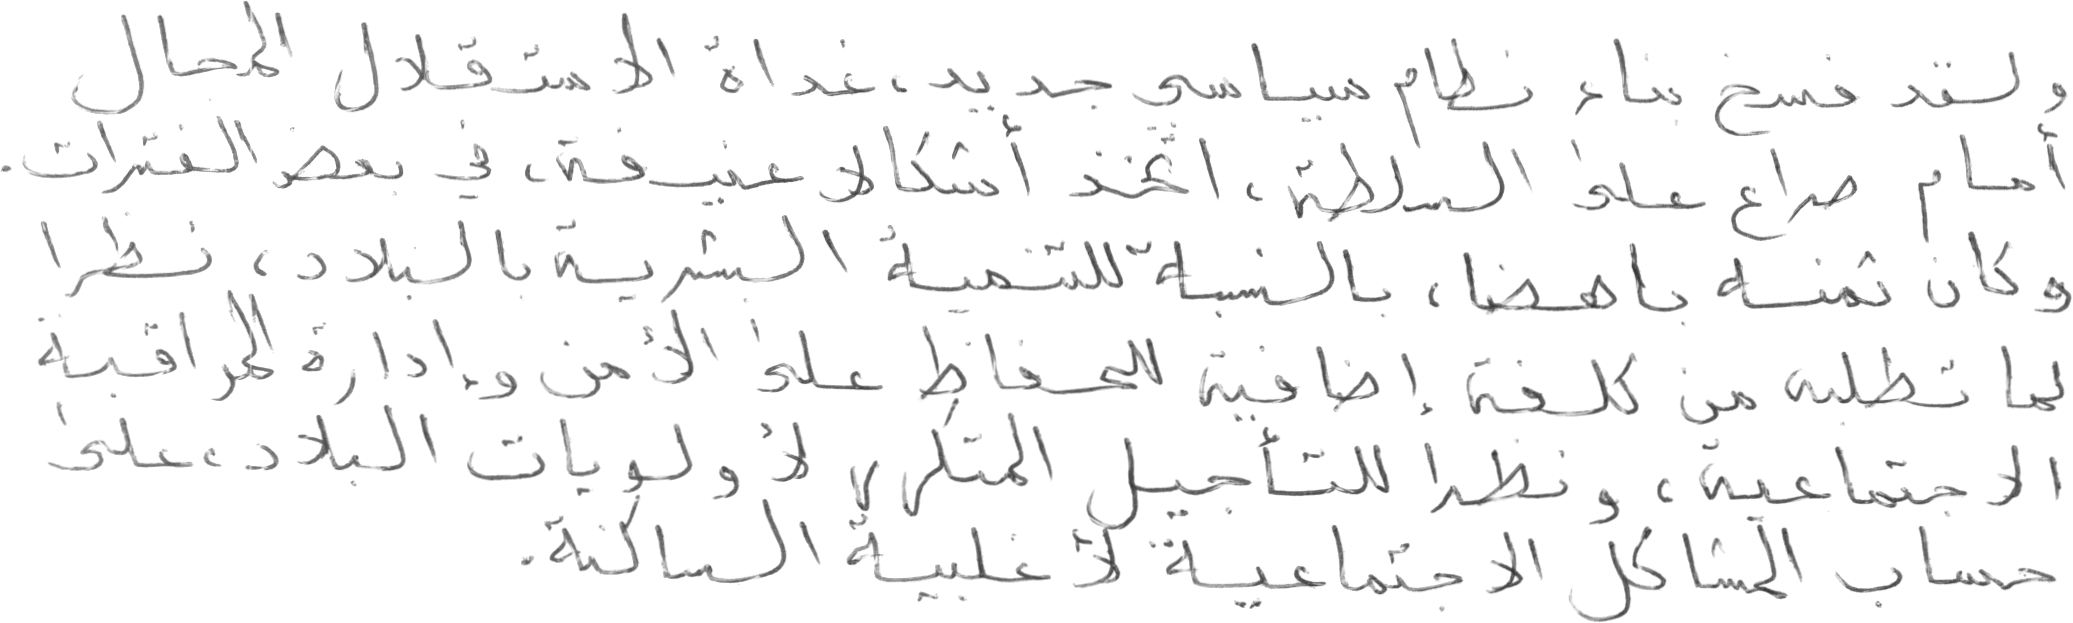 ولقد فسخ بناء نظام سياسي جديد، غداة الاستقلال المجال
أمام صراع على السلطة، اتخذ أشكالا عنيفة، في بعض الفترات.
وكان ثمنه باهضا، بالنسبة للتنمية البشرية بالبلاد، نظرا
لما تطلبه من كلفة إضافية للحفاظ على الأمن وإدارة المراقبة
الاجتماعية، ونظرا للتأجيل المتكرر لأولويات البلاد، على
حساب المشاكل الاجتماعية لأغلبية الساكنة.